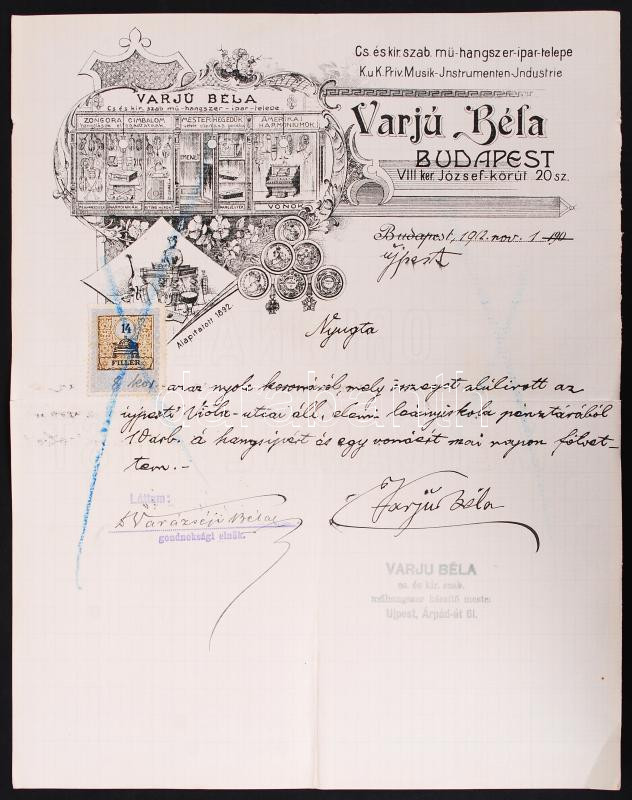 Cs. és kir. szab. mű-hangszer-ipar-telepe
K.u.K. Priv. Musik-Jnstrumenten-Jndustrie
VARJÚ BÉLA
Cs. és kir. szab. mű-hangszer-ipar-telepe
ZONGORA CIMBALOM
MESTERHEGEDŰK
AMERIKAI
HARMONIUMOK
BEMENET
VONÓK
Varjú Béla
BUDAPEST
VIII. ker. József-körút 20 sz.
Budapest, 1912. nov. 1 190
Újpest
Alapitatott 1892.
Nyugta
14
FILLÉR
8 kor. azaz nyolc koronáról mely összeget alulirott az
ujpesti Viola-utcai áll. elemi leányiskola pénztárából
10 darb. á hangsipért és egy vonóért mai napon fölvet-
tem.-
Láttam:
Varju Béla
gondnoksági elnök.
VARJU BÉLA
cs. és kir. szab.
műhangszer készítő mester
Ujpest, Árpád-út 61.
darabanth